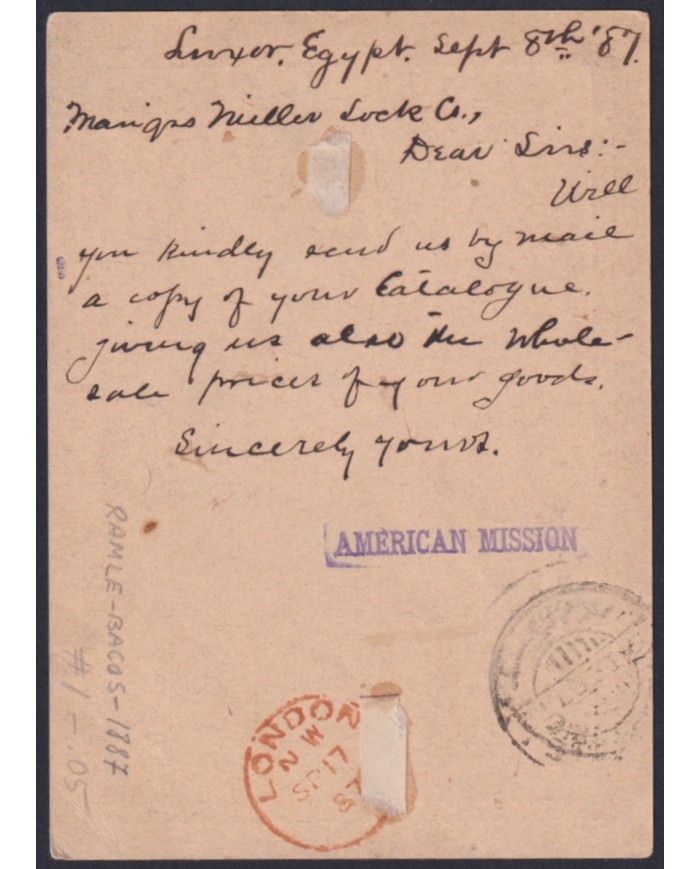 Luxor, Egypt. Sept 8th '87.
Miller Lock Co.,
Dear Sirs:-
Will
you kindly send us by mail
a copy of your Catalogue.
giving us also the whole-
sale prices of your goods.
Sincerely yours.
AMERICAN MISSION
RAMLE-BACOS-1887
#1-.05
LONDON
N W
SP 17
87